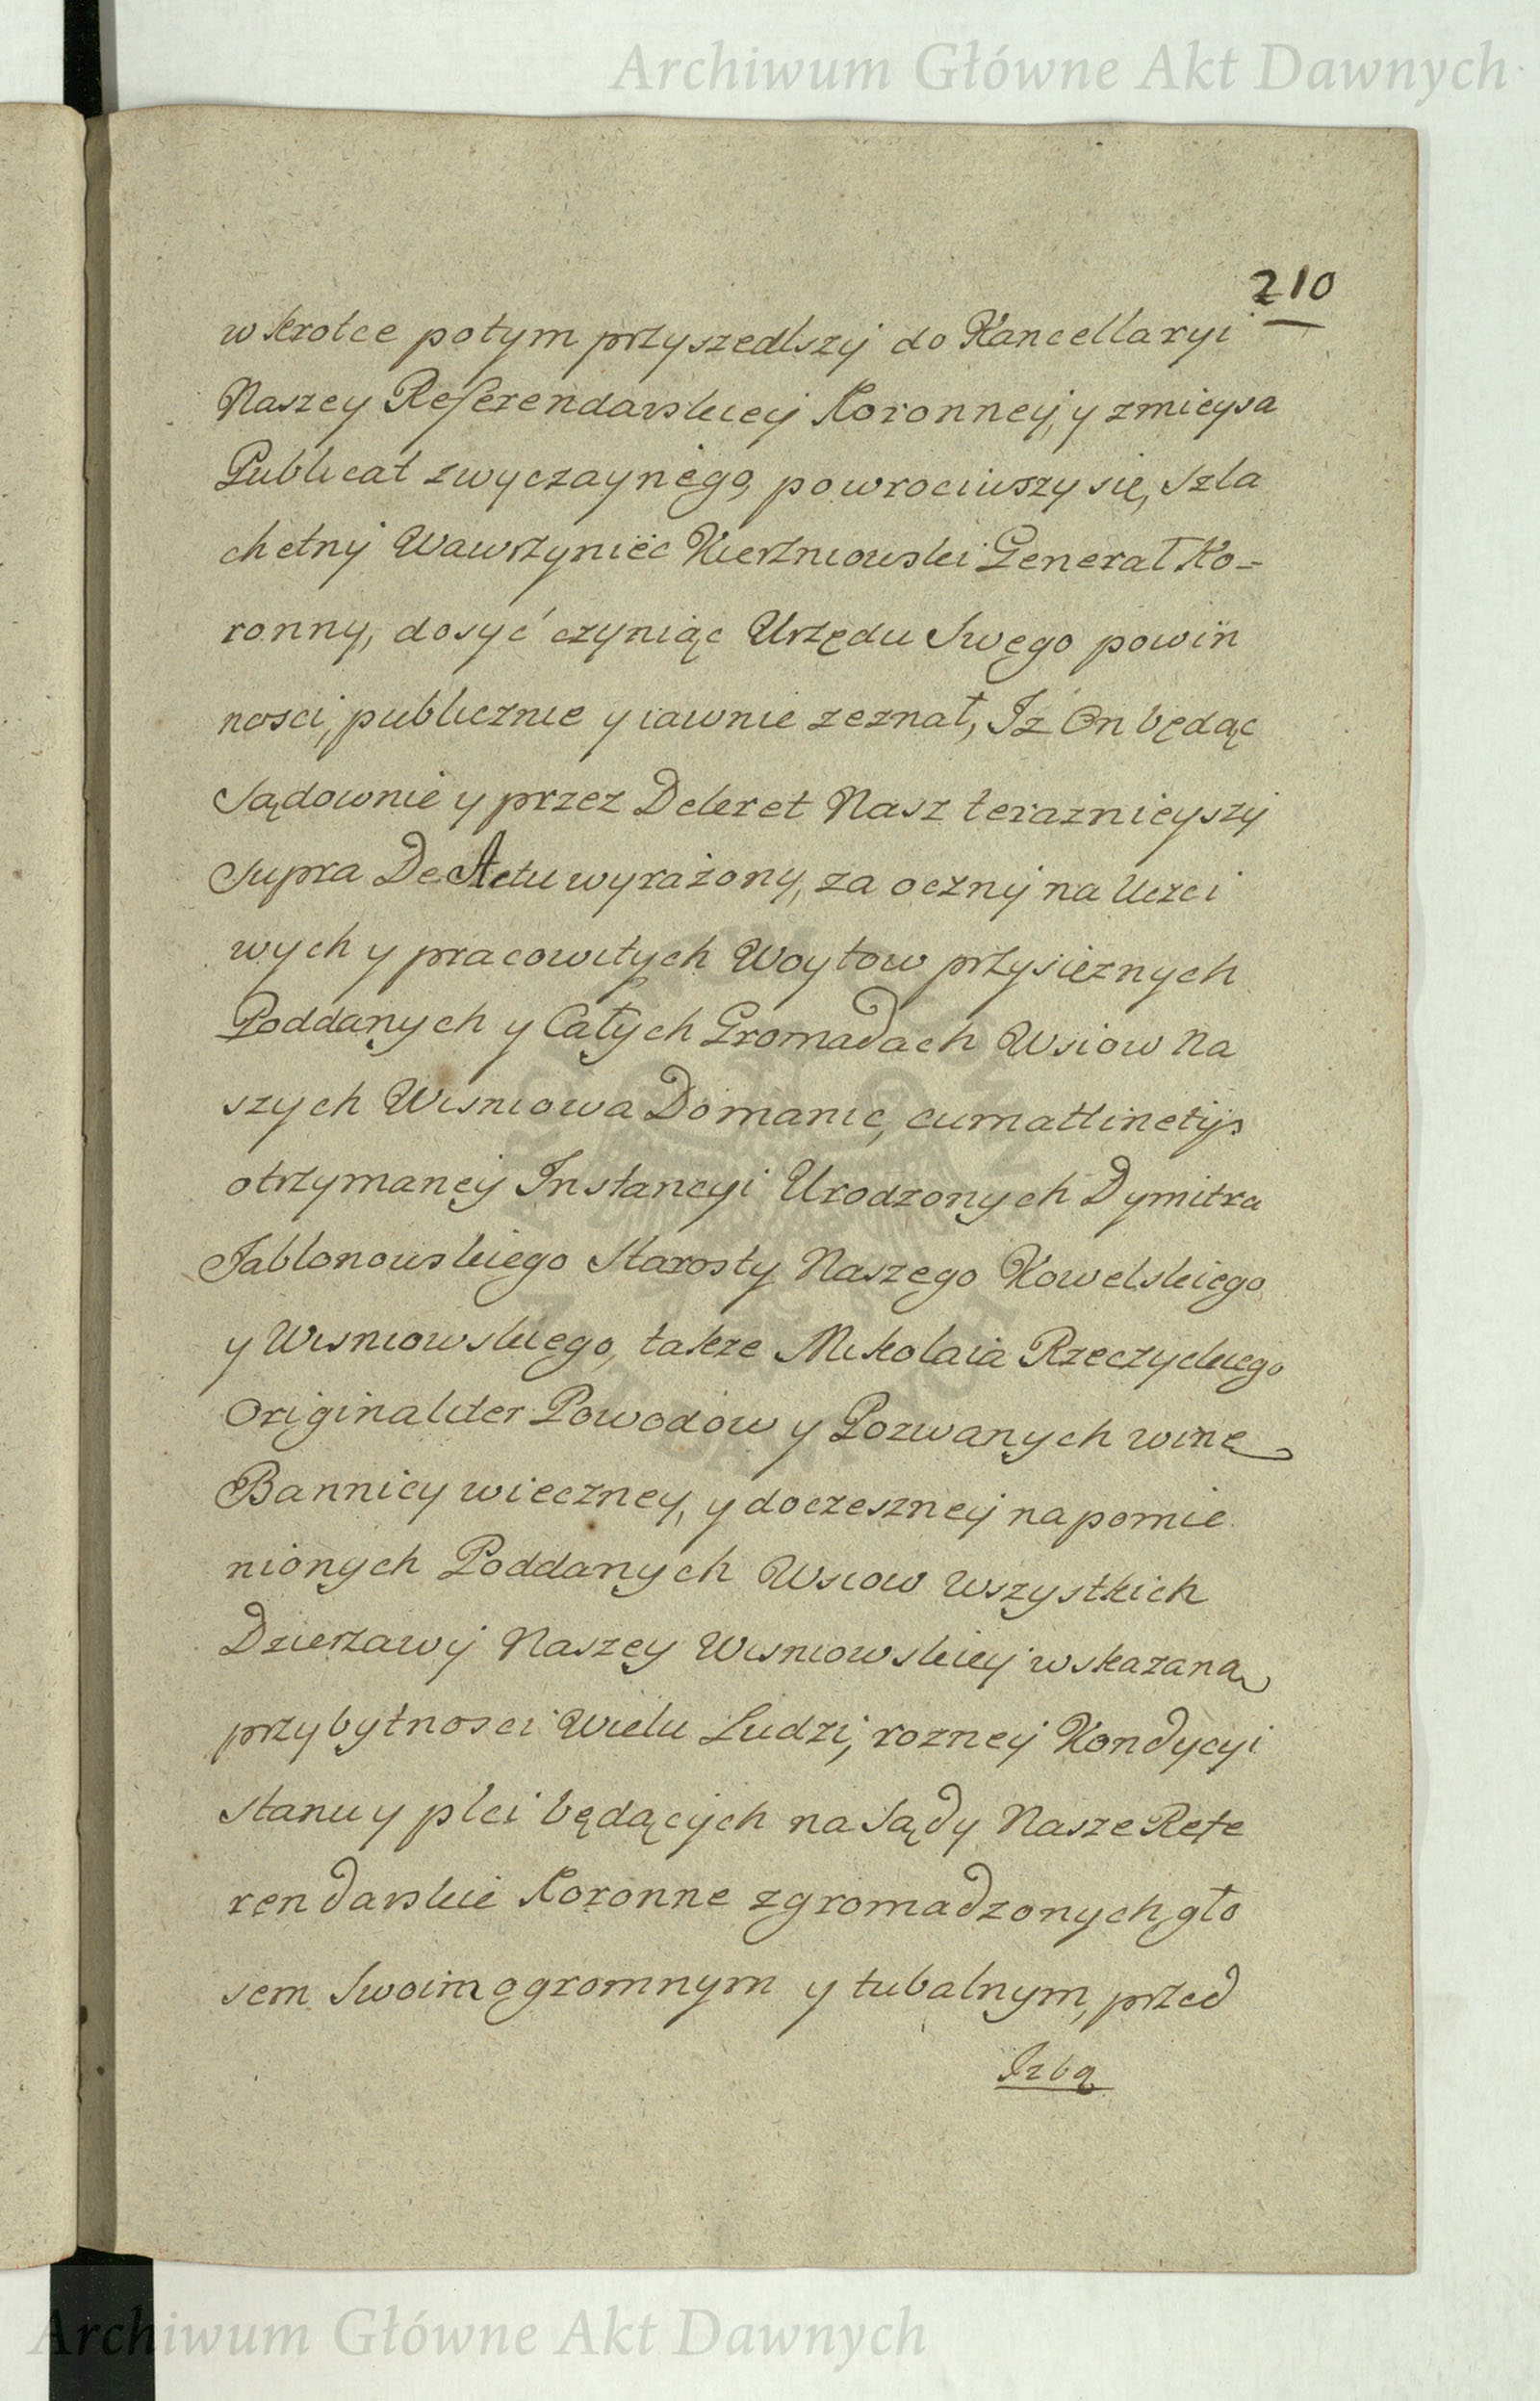 Archiwum Główne Akt Dawnych
210
w krotce potym przyszedłszy do Kancellaryi
Naszey Referendarskiey Koronney, y zmieysa
Publicat zwyczaynego, powrociwszy się, Szla
chetny Wawrzyniec Kierzniowski Generał Ko=
ronny, dosyć czyniąc Urzędu Swego powin
nosci, publicznie y iawnie zeznał, Iż On będąc
Sądownie y przez Dekret Nasz teraznieyszy
Supra De Actu wyrażony, za oczny na Uczci
wych y pracowitych Woytow przysięznych
Poddanych y Całych Gromadach Wsiow Na
szych Wisniowa Domanic, cum attinetijs
otrzymaney Instancyi Urodzonych Dymitra
Jabłonowskiego Starosty Naszego Kowelskiego
y Wisniowskiego, takze Mikołaia Rzeczyckiego
Originaliter Powodow y Pozwanych winę
Bannicy wieczney, y doczesney na pomie
nionych Poddanych Wsiow wszystkich
Dzierzawy Naszey Wisniowskiey wskazaną
przybytnosci Wielu Ludzi, rozney Kondycyi
stanu y płci będących na Sądy Nasze Refe
rendarskie Koronne zgromadzonych, gło
sem Swoim ogromnym y tubalnym, przed
Izbą
Archiwum Główne Akt Dawnych